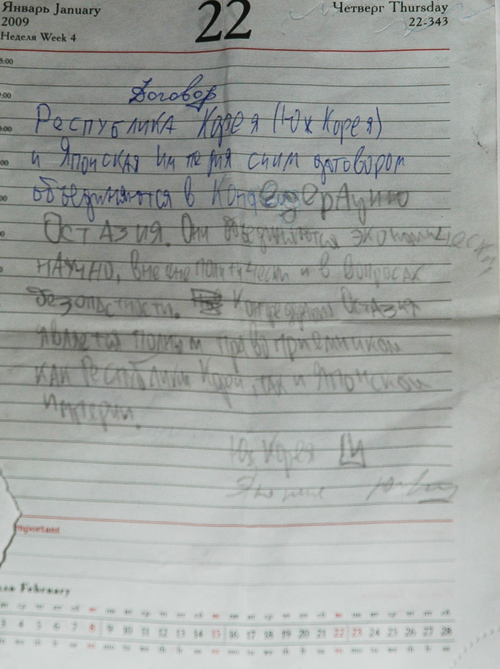 Январь January
2009
Неделя Week 4
22
Четверг Thursday
22-343
8:00
Договор
Республика Корея (Юж Корея)
и Японская Империя сним договором
объединяются в Конфедерацию
Остазия. Они объединяются экономически
научно, внешнеполитически и в вопросах
безопастности. Конфедерация Остазия
является полным правоприемником
как Республики Корея, так и Японской
Империи.
Юж Корея
Important
February
3 4 5 6 7 8 9 10 11 12 13 14 15 16 17 18 19 20 21 22 23 24 25 26 27 28